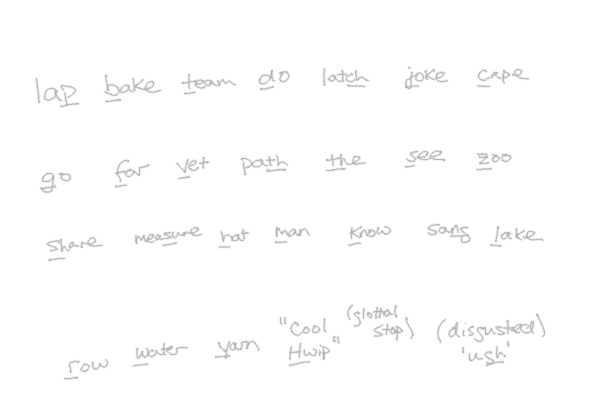 lap bake team do latch joke cape
go far vet path the see zoo
share measure hat man know sang lake
row water yarn "Cool Hwip" (glottal stop) (disgusted) 'ugh'